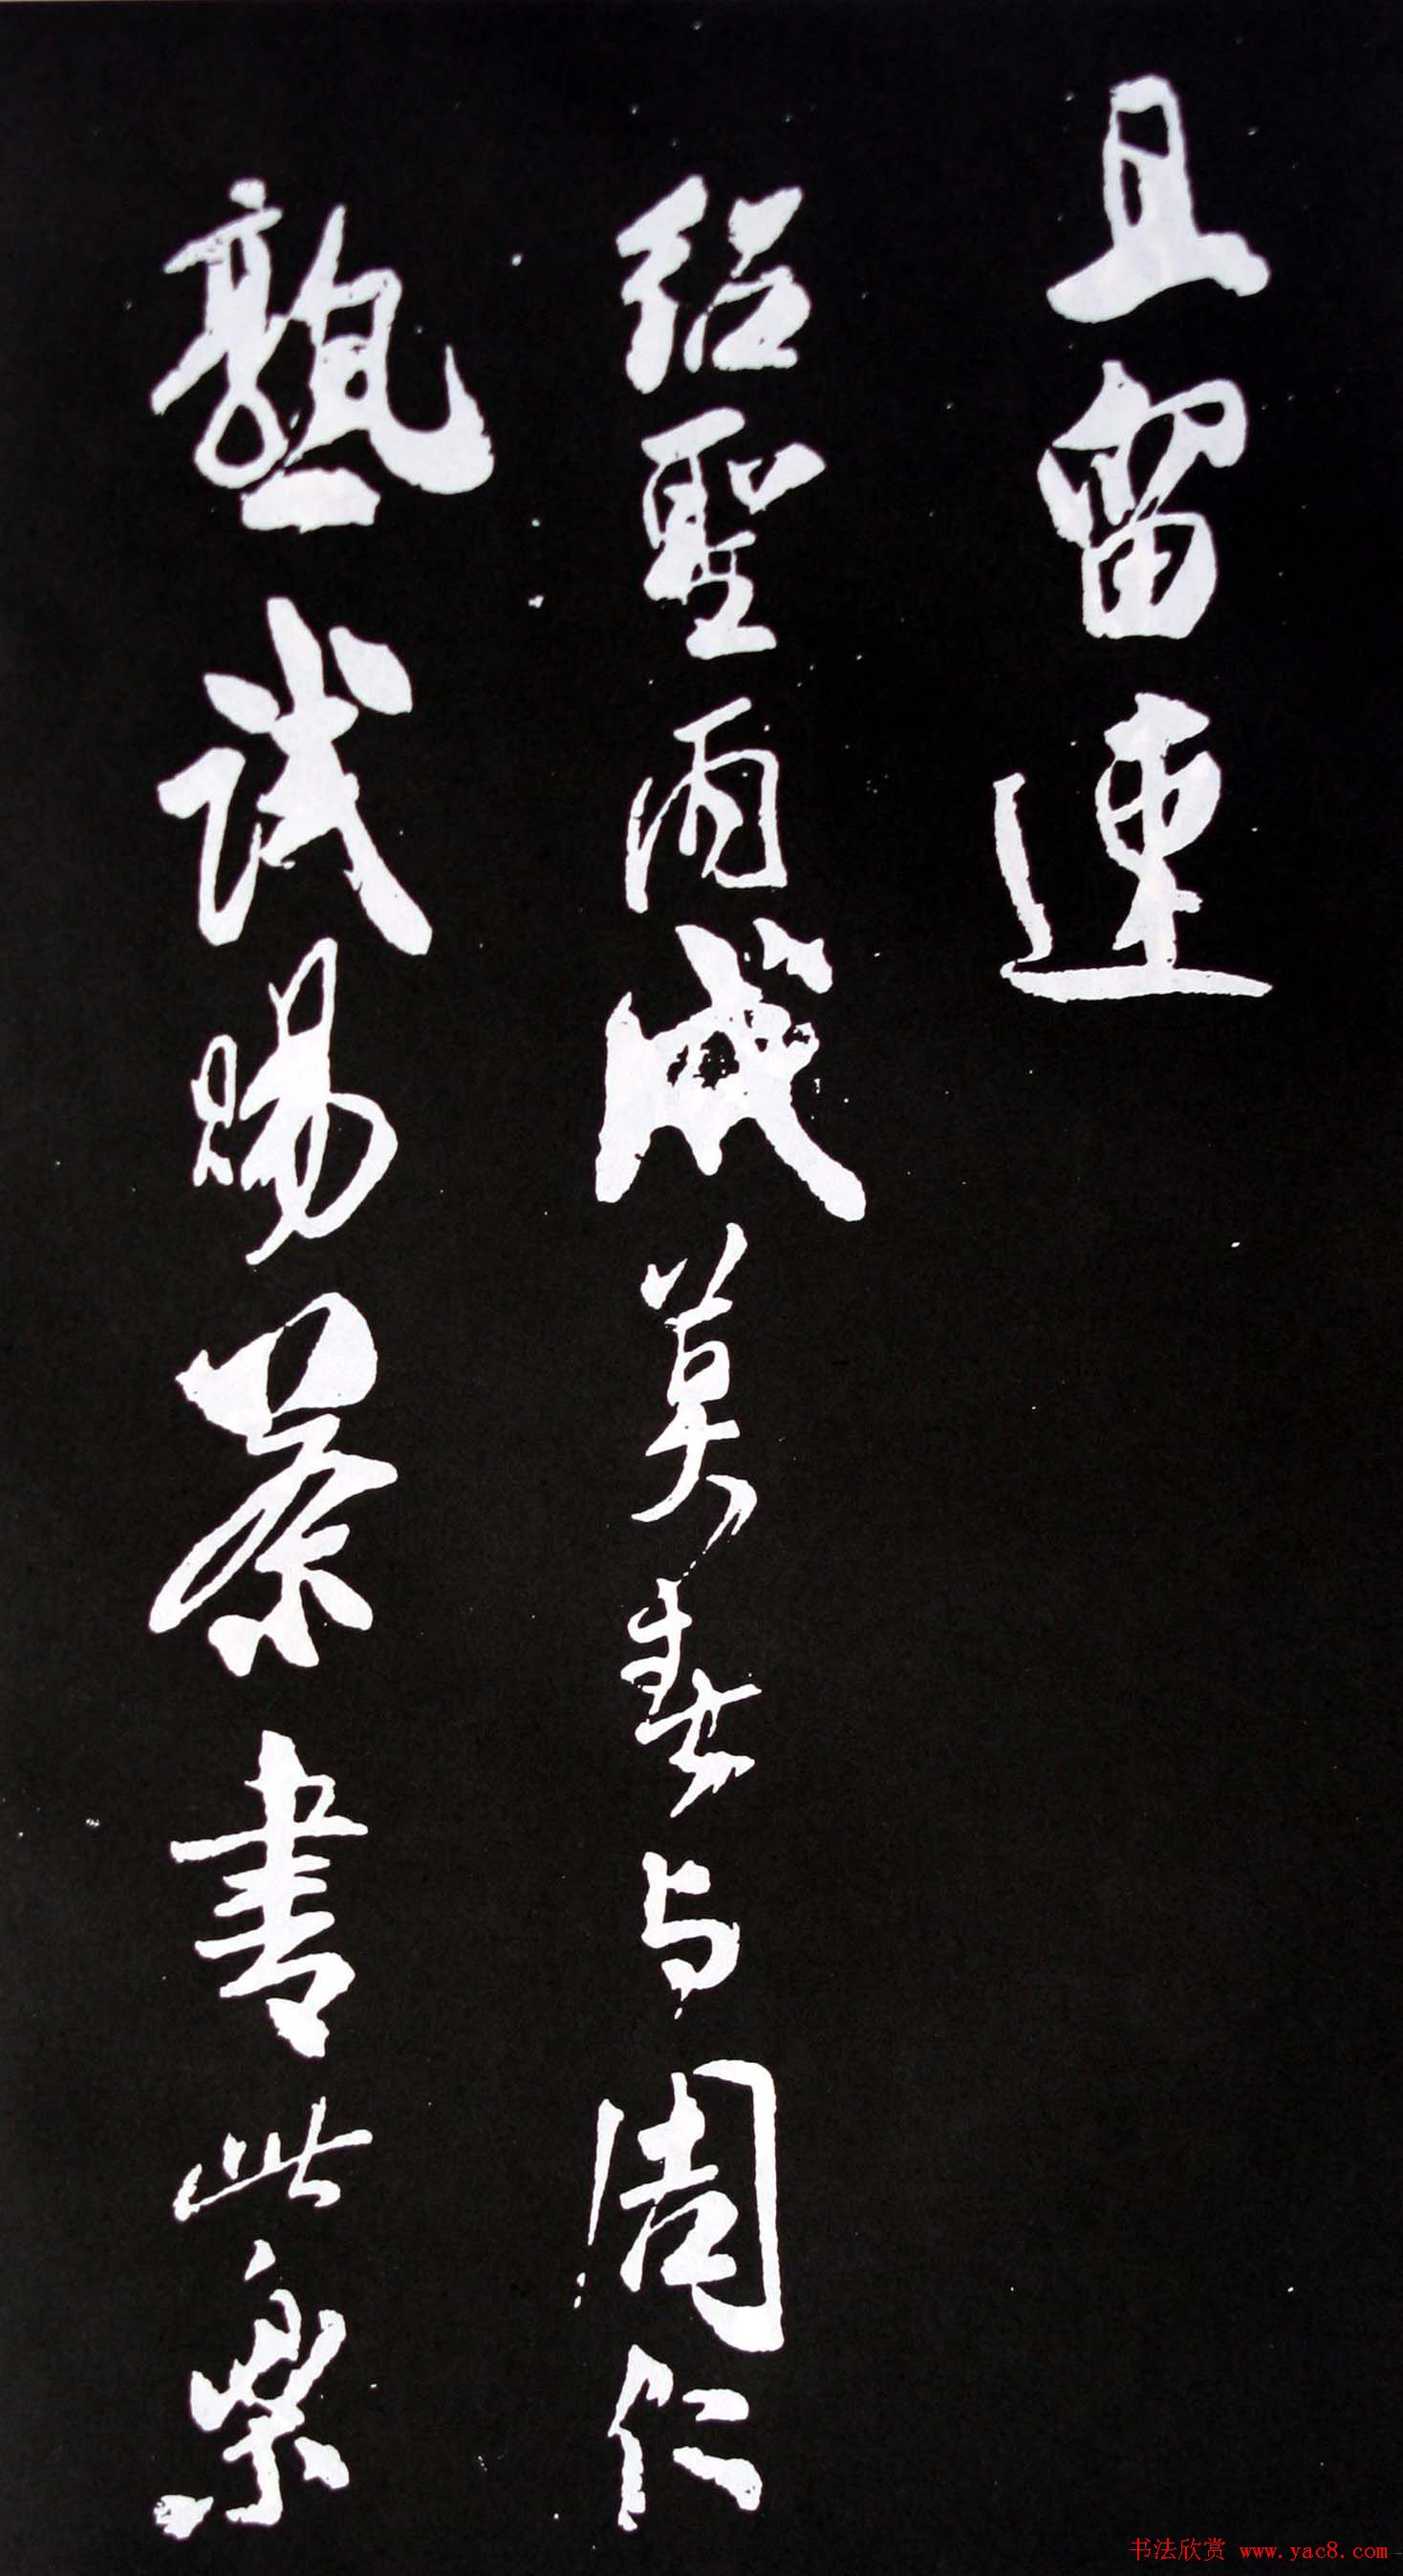 且留連
紹聖丙戌莫春与周仁
熟試賜茶書此樂
书法欣赏 www.yac8.com